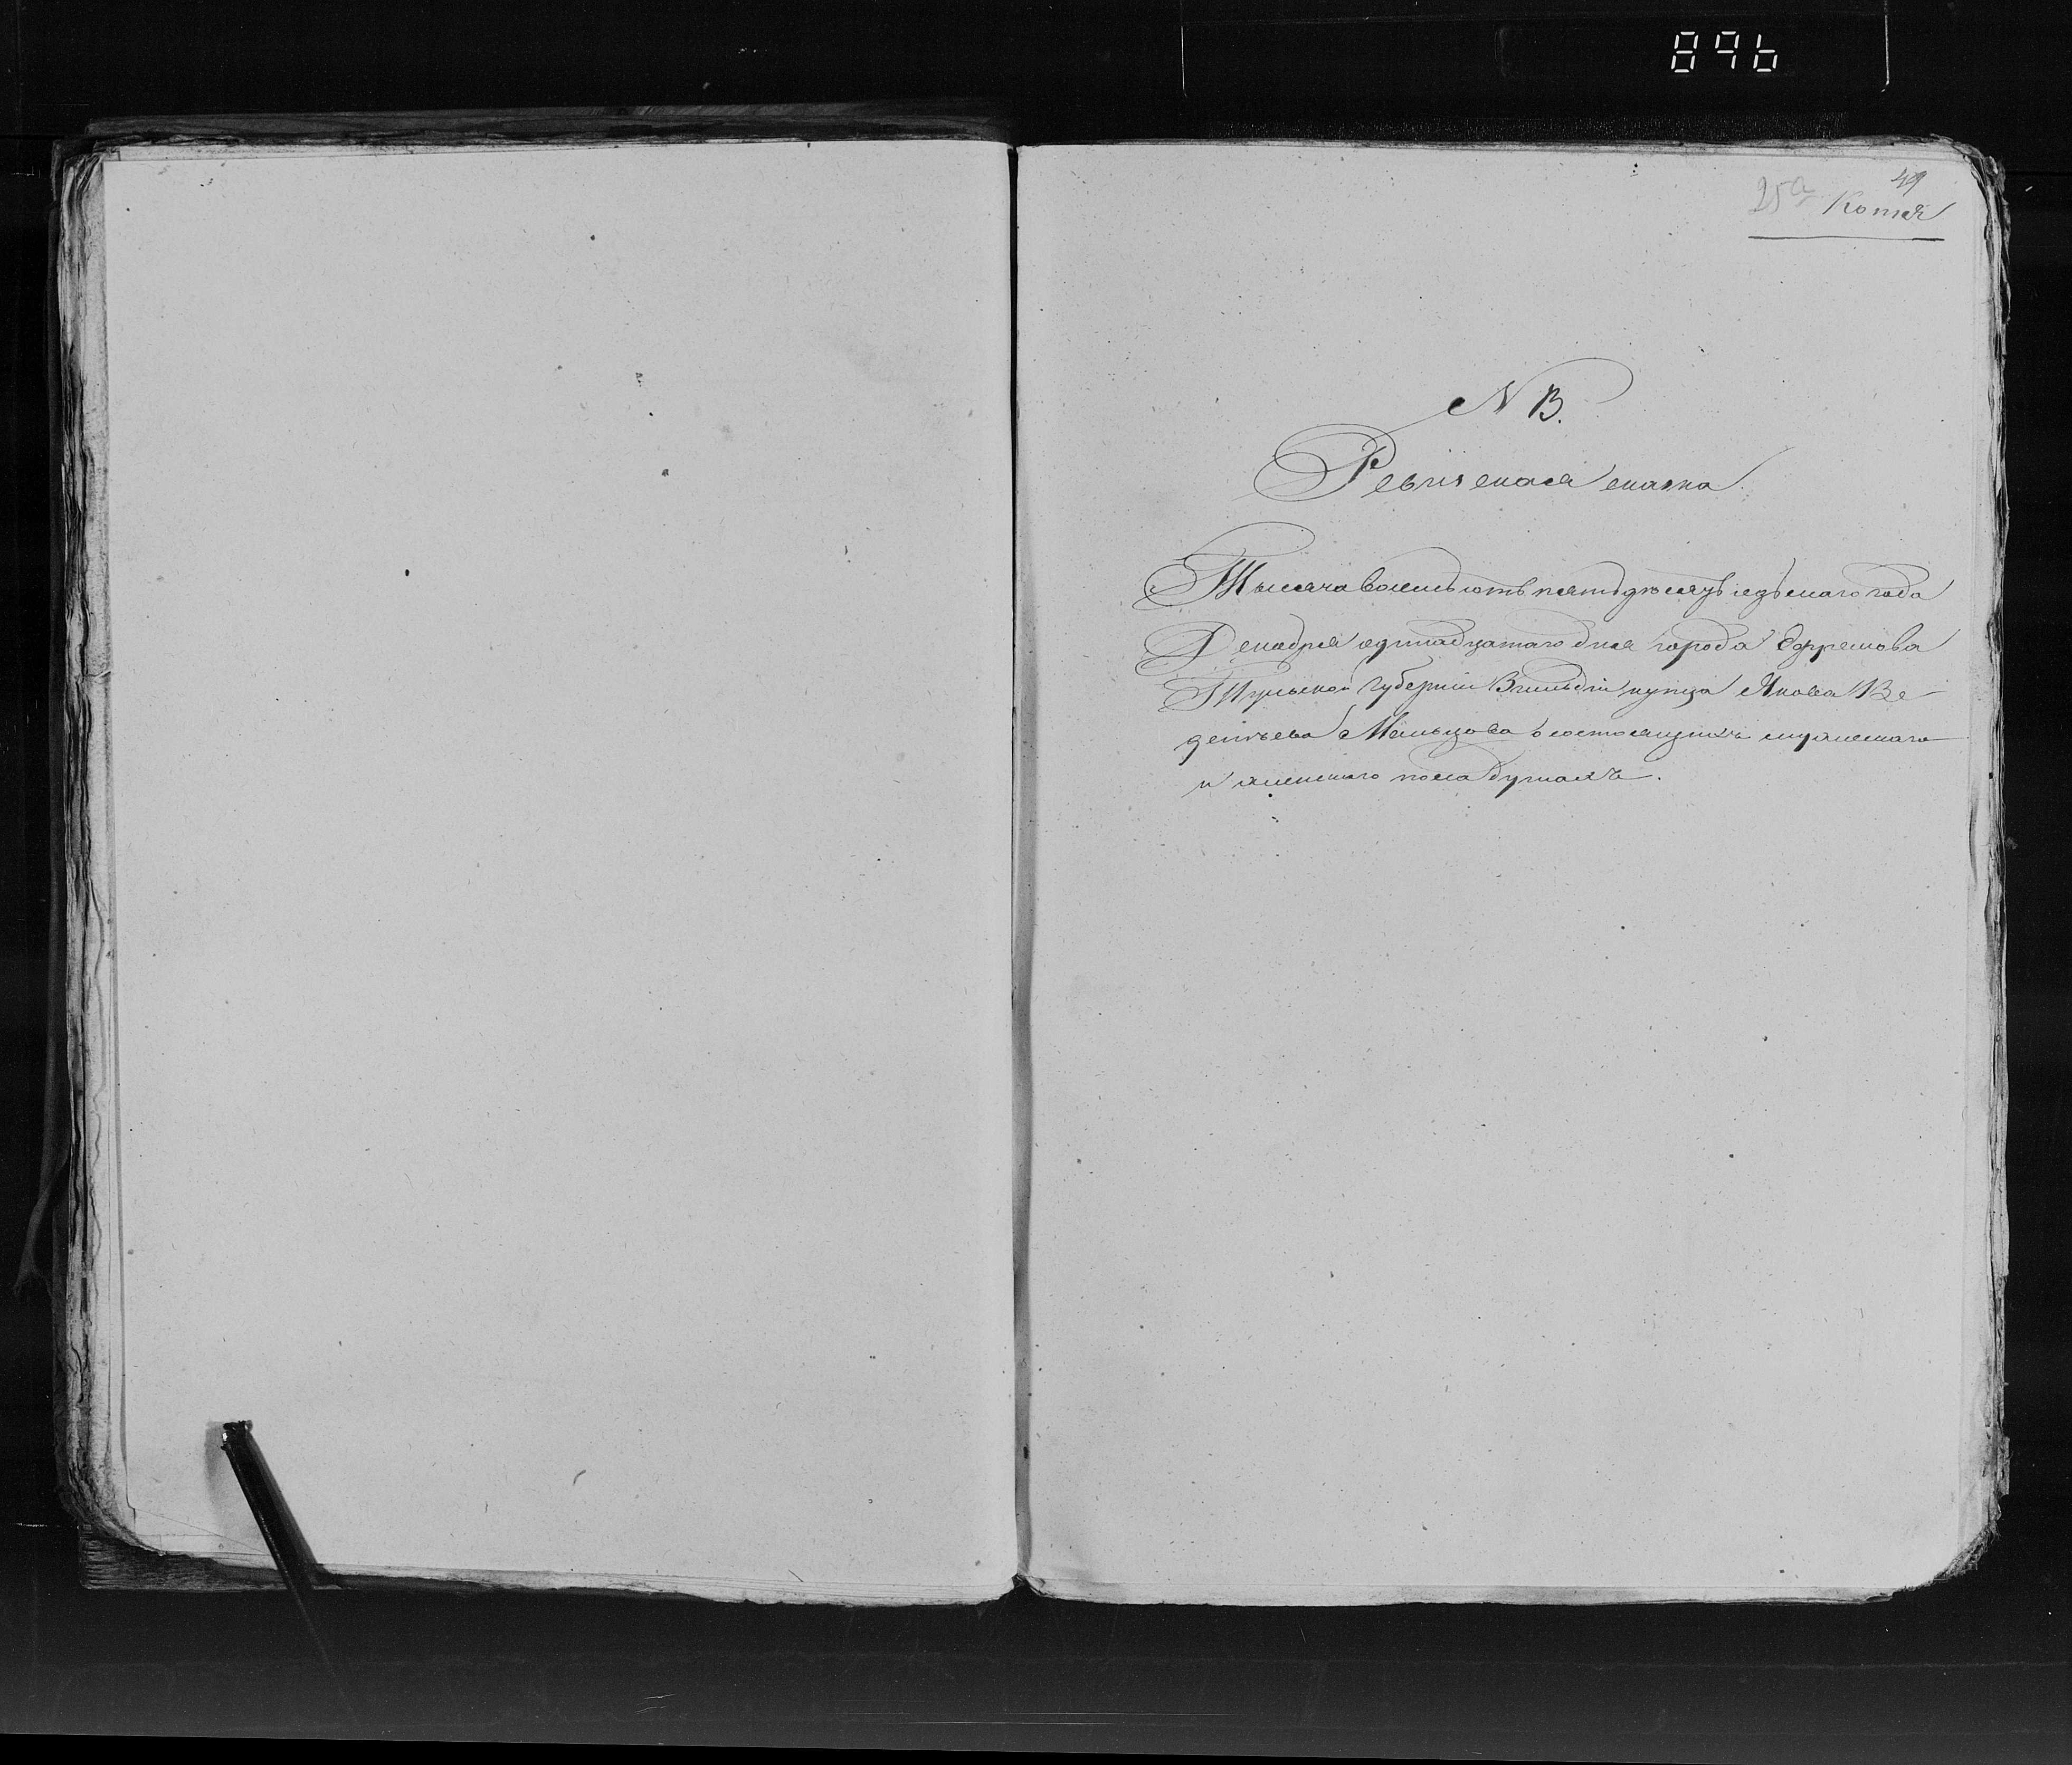 896
49
25а Копія
N В.
Ревизская сказка
Тысяча восемьсотъ пятьдесятъ седьмаго года
Декабря одинадцатаго дня города Ефремова
Тульской Губерніи 3 гильдіи купца Якова Ве-
деніева Мальцова о состоящихъ мужескаго
и женскаго пола душахъ.